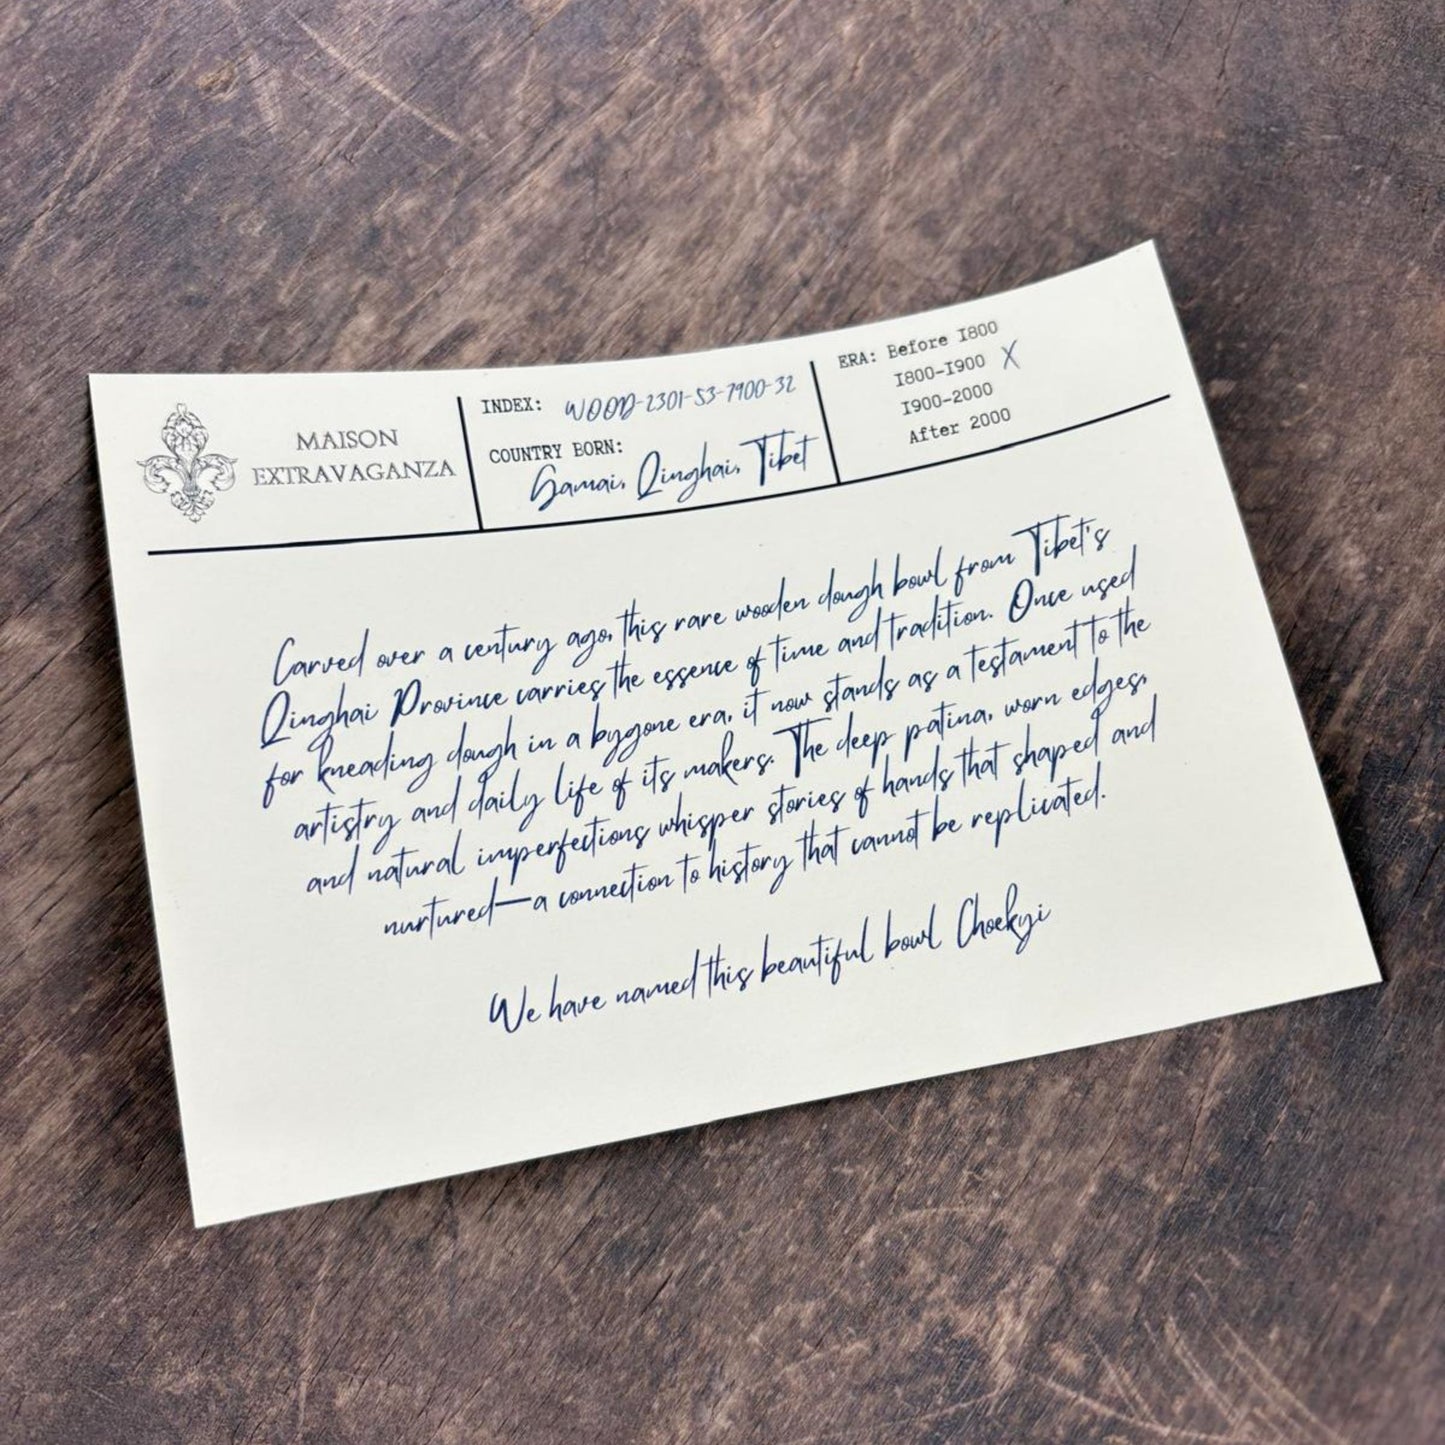 MAISON
EXTRAVAGANZA
INDEX: WOOD-2301-53-7900-32
COUNTRY BORN:
Samai, Qinghai, Tibet
ERA: Before 1800
1800-1900 X
1900-2000
After 2000
Carved over a century ago, this rare wooden dough bowl from Tibet's
Qinghai Province carries the essence of time and tradition. Once used
for kneading dough in a bygone era, it now stands as a testament to the
artistry and daily life of its makers. The deep patina, worn edges,
and natural imperfections whisper stories of hands that shaped and
nurtured—a connection to history that cannot be replicated.
We have named this beautiful bowl Choekyi